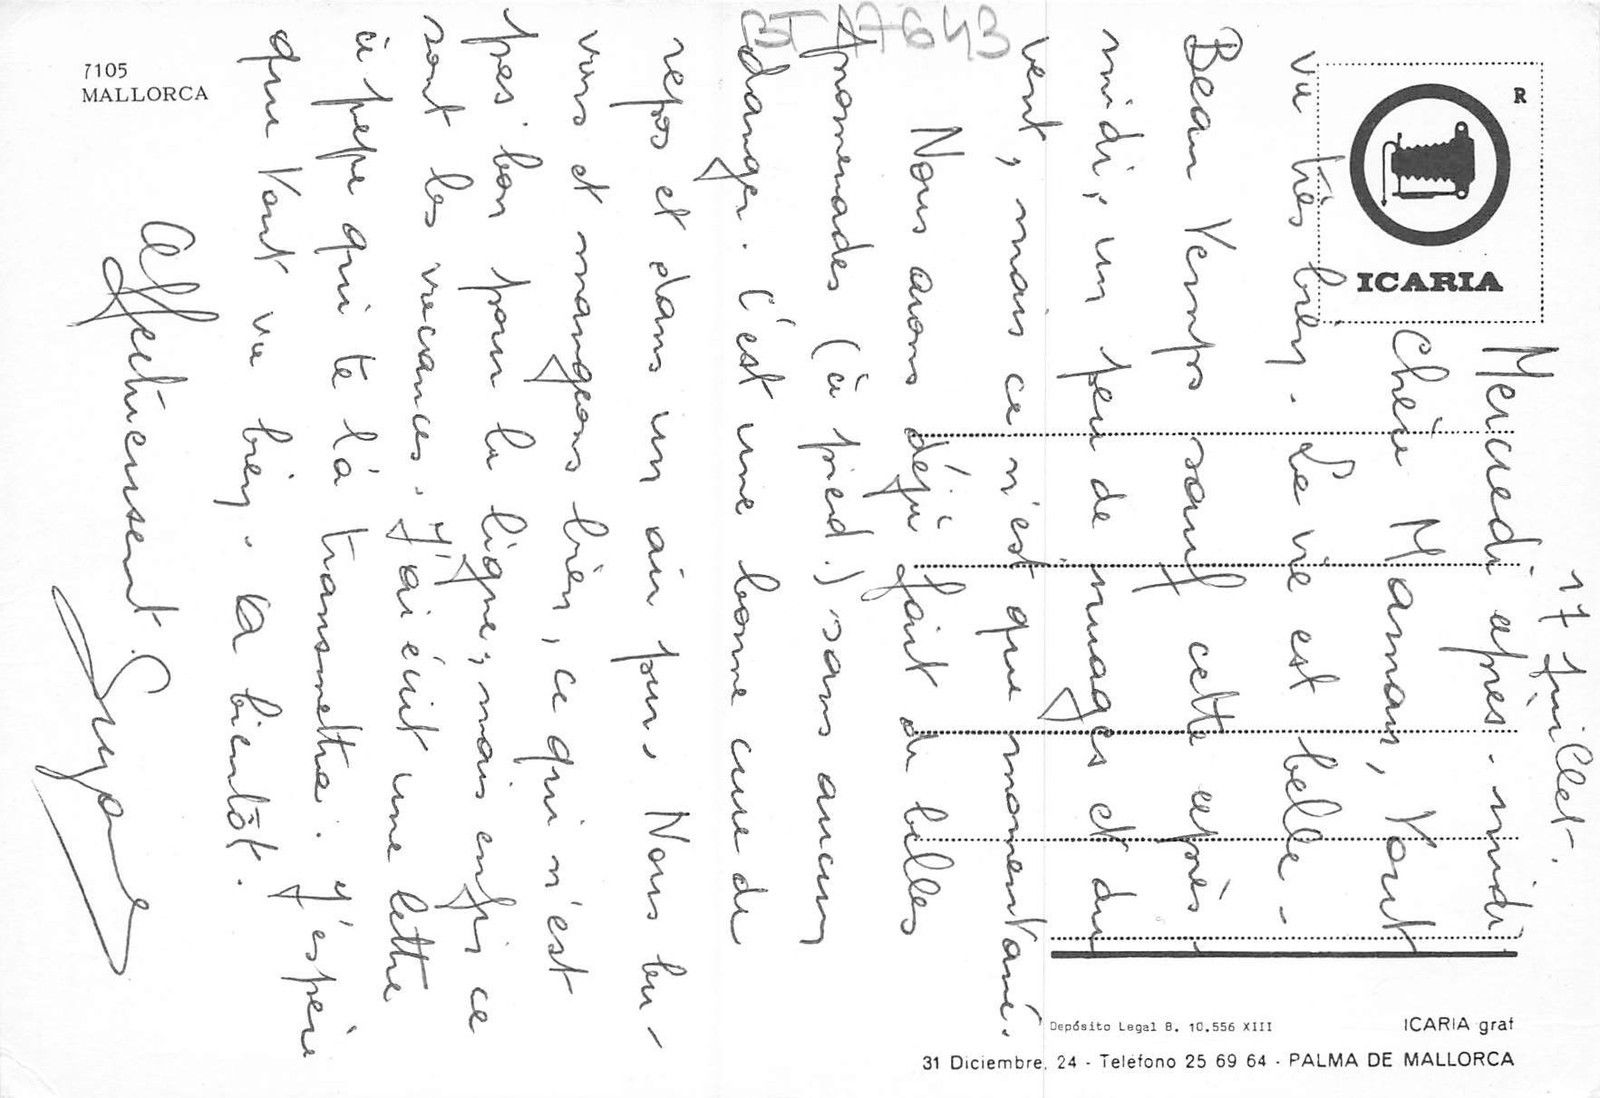 7105
MALLORCA
R
ICARIA
17 Juillet.
Mercredi après-midi
Chère Maman, Tout
va très bien. La vie est belle.
Beau temps sauf cette après
midi, un peu de nuages et du
vent, mais ce n'est que momentané.
Nous avons déjà fait de belles
promenades (à pied.) sans aucun
danger. C'est une bonne cure de
repos et dans un air pur. Nous bu-
vons et mangeons bien, ce qui n'est
pas bon pour la ligne, mais enfin ce
sont les vacances. J'ai écrit une lettre
à pepe qui te l'a transmettra. J'espère
que tout va bien. A bientôt.
Affectueusement.
Depósito Legal B. 10.556 XIII
ICARIA graf
31 Diciembre, 24 - Teléfono 25 69 64 - PALMA DE MALLORCA